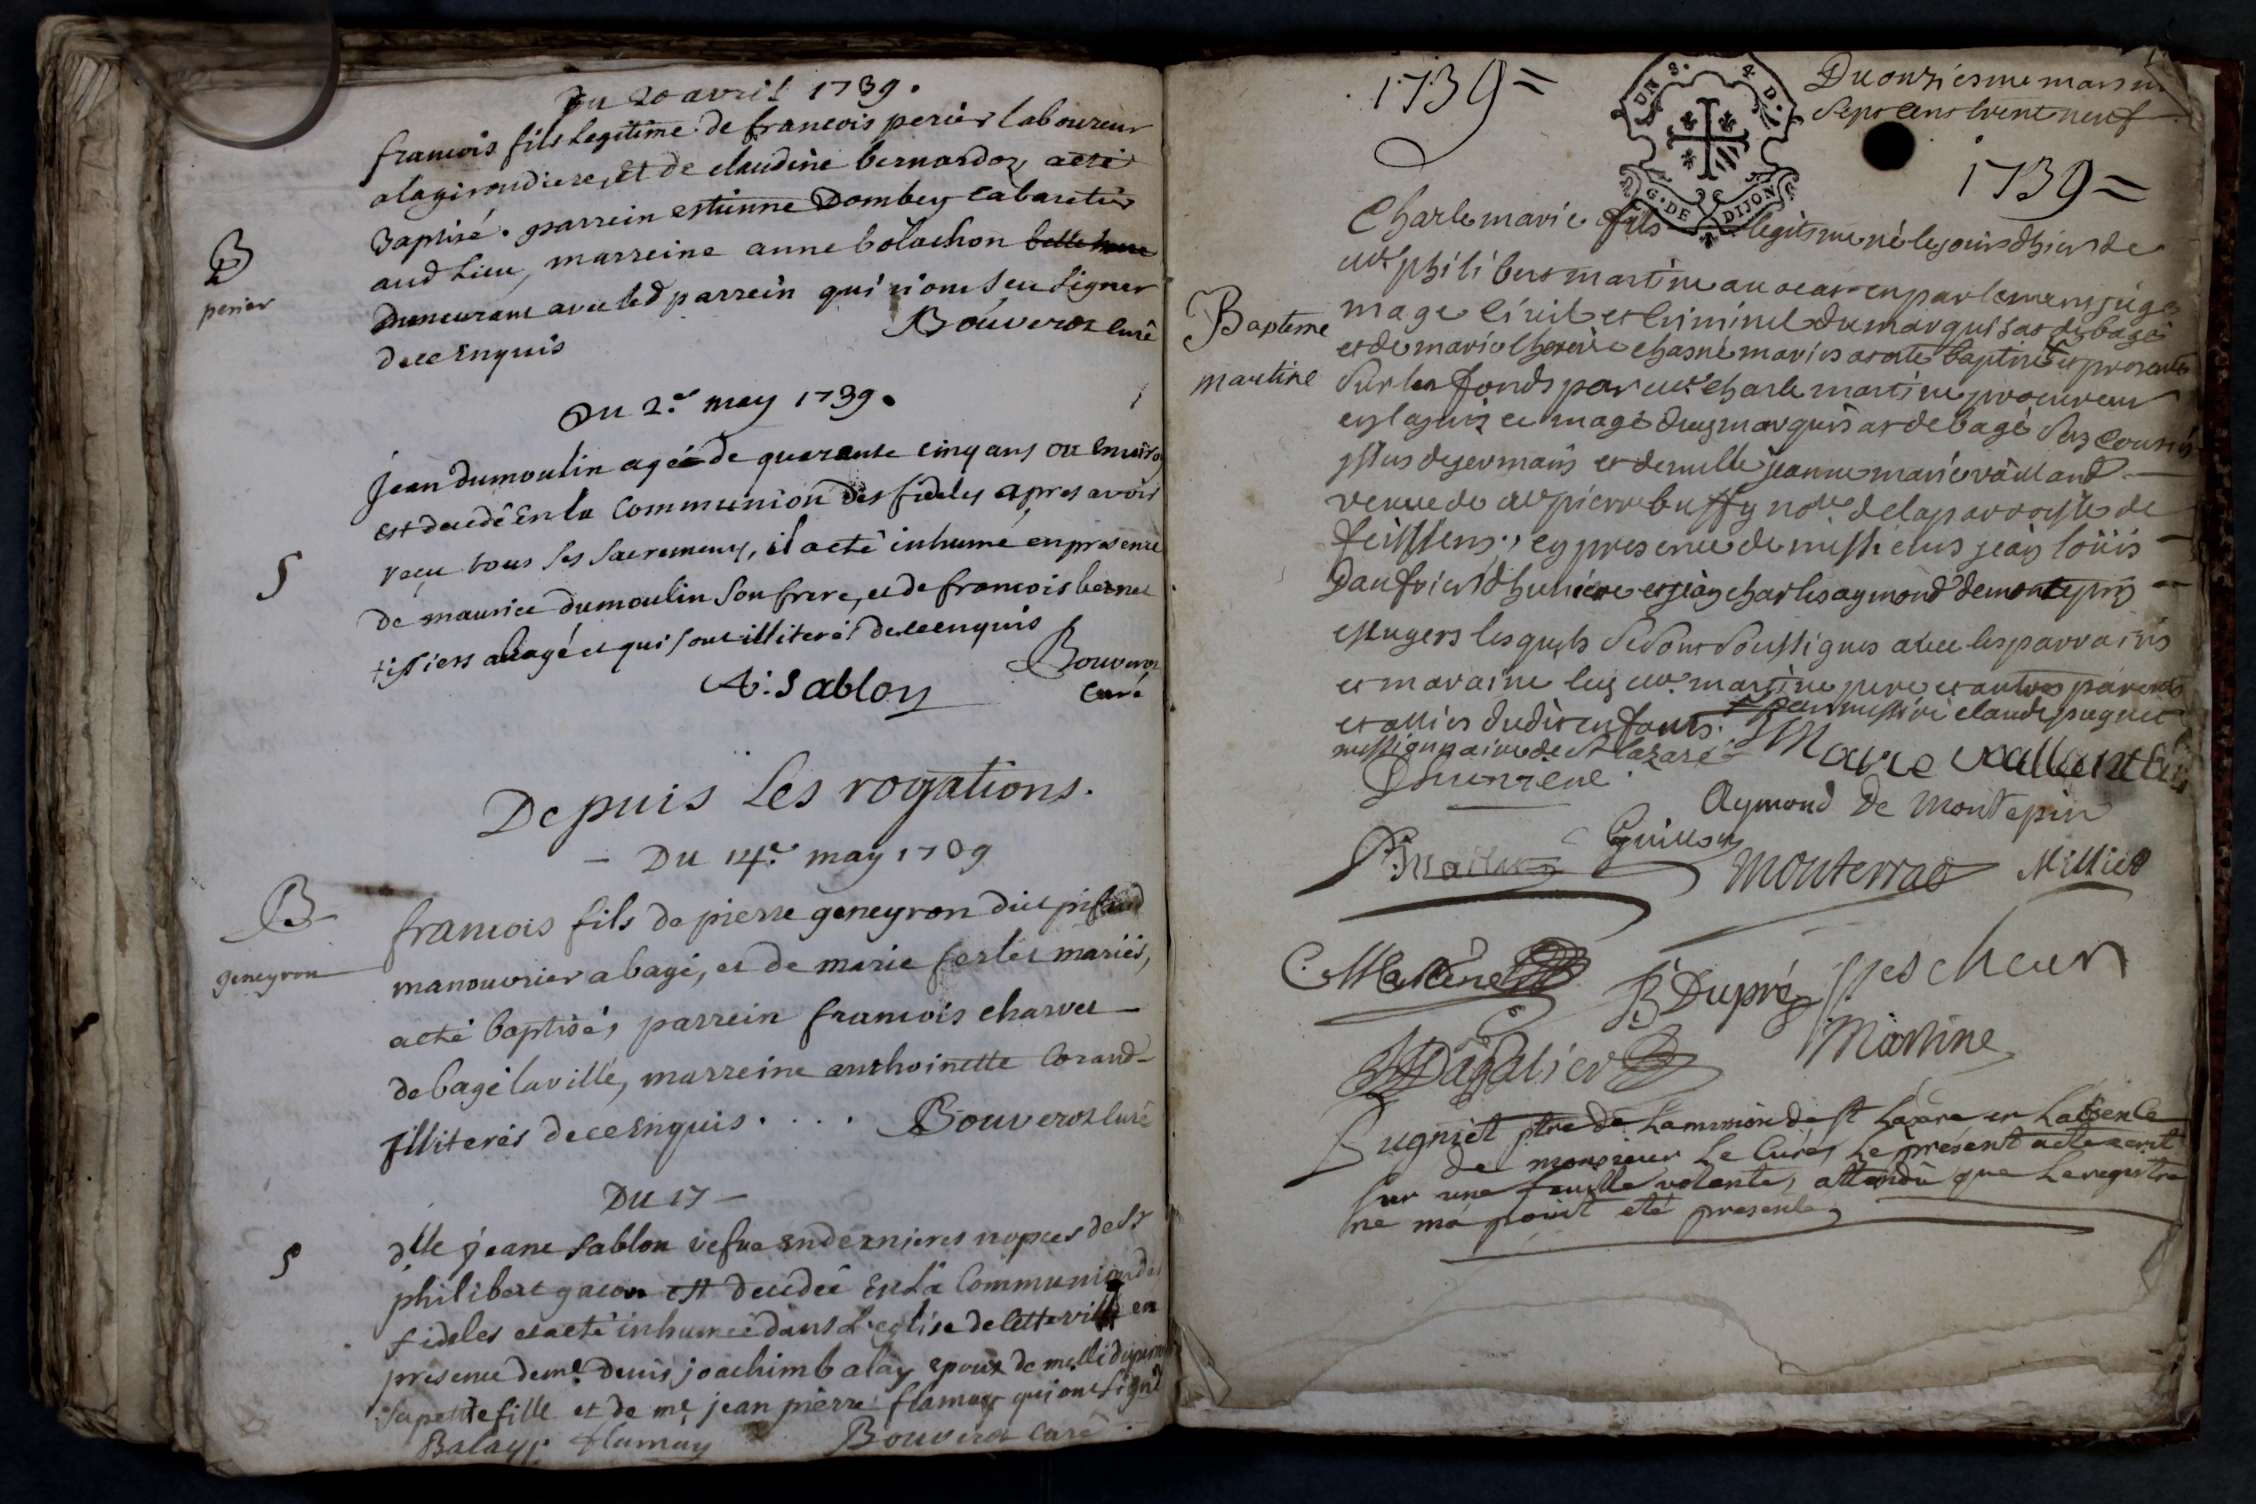 Du 20 avril 1739.
francois fils legitime de francois perier laboureur
alagirondiere, et de claudine bernardoz acté
Baptisé. parrein estienne Dombey cabaretier
aud lieu, marreine anne bolachon
Demeurant avec led parrein qui n'ont seu signer
dece Enquis
Bouveroz curé
B
perier
Du 2.e may 1739.
jean dumoulin agé de quarante cinq ans ou Environ
est decedé En la Communion des fideles apres avoir
reçu tous ses sacremens, il acté inhumé en presence
de maurice dumoulin son frere, et de francois bernet
tissiers abagé et qui sont illiterés dece enquis
S
A: Sablon
Bouveroz
Curé
Depuis Les rogations.
- Du 14.e may 1739
francois fils de pierre geneyron dit
manouvrier a bagé, et de marie ferlet mariés,
acté baptisé, parrein francois charvet
de bagé la ville, marreine anthoinette Corand
Illiterés dece Enquis . . . . Bouveroz curé
B
geneyron
Du 17 -
dlle jeane Sablon vefve en dernieres nopces de Sr
philibert gacon est decedée En La Communion des
fideles et acté inhumée dans L'eglise de Cette ville en
presence de me. denis joachim balay epoux de
sa petite fille et de me jean pierre flamay qui ont signé
Balay. flamay Bouveroz curé
S
1739 =
UN S. 4 D.
G. DE DIJON
Du onziesme mars mi
sept cens trente neuf
1739 =
Charle marie fils legitime né le jour d'hier de
me philibert martine avocat en parlement juge
mage civil et criminel du marquisat de bagé
et de marie therese chasné mariés a esté baptisé et presenté
sur les fonds par me charle martine procureur
en la justice mage du marquisat de bagé son cousin
yssus de germain et demlle jeanne marie vaillant
veuve de me pierre buffy nore de la parroisse de
feissens, en presence de messieurs jean loüis
Daufrier d'huniere et jean charles aymond de montepin
escuyers lesquels se sont soussignes avec les parrains
et maraine led me. martine pere et autres parents
et alliés dudit enfant. par messire claude pugniet
missionnaire de st lazare
Baptême
martine
Dhuniere
Marie vaillant
Aymond De Montepin
Guillon
Monterrad
Millied
C. Martine
B Dupré
pescheur
Dagallier
Martine
Pugniet ptre de La mission de st Lazare en Labsence
de monsieur Le Curé, Le présent acte ecrit
sur une feuille volante, attendû que Le registre
ne ma point eté presenté